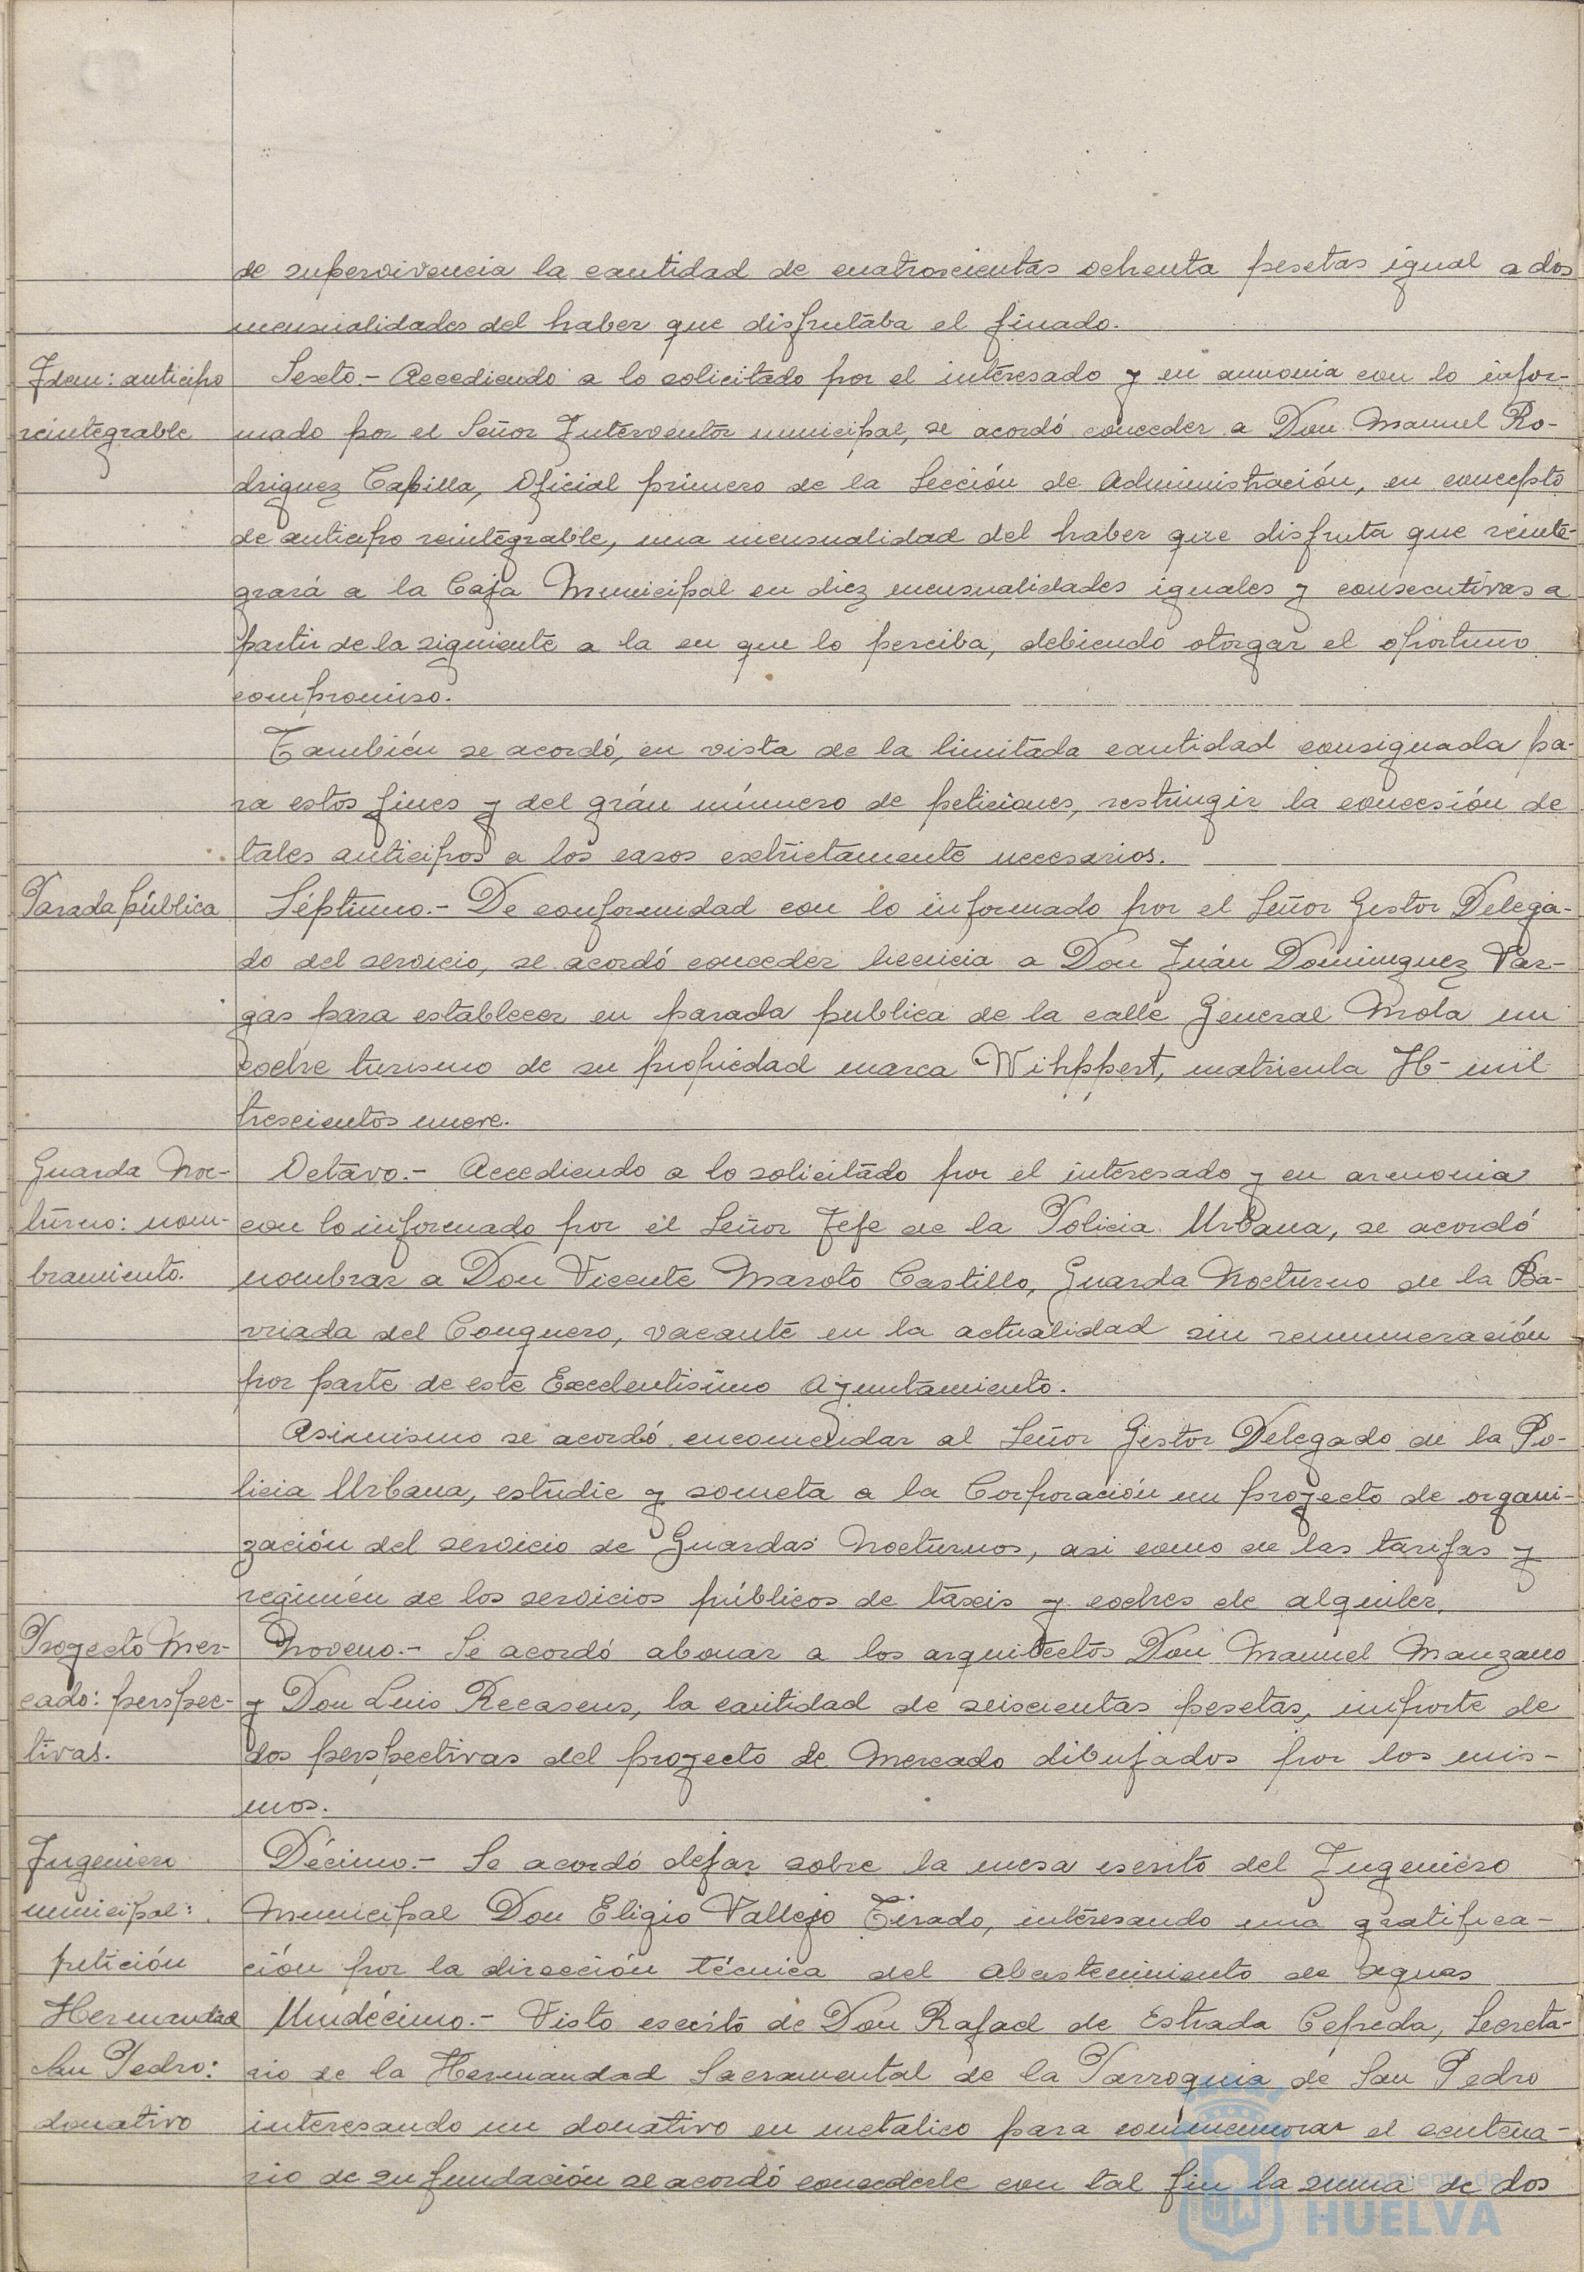 de supervivencia la cantidad de cuatroscientas ochenta pesetas igual a dos
mensualidades del haber que disfrutaba el finado.
Idem: anticipo
reintegrable
Sexto.- Accediendo a lo solicitado por el interesado y en armonia con lo infor-
mado por el Señor Interventor municipal, se acordó conceder a Don Manuel Ro-
driguez Capilla, Oficial primero de la Sección de Administración, en concepto
de anticipo reintegrable, una mensualidad del haber que disfruta que reinte-
grará a la Caja Municipal en diez mensualidades iguales y consecutivas a
partir de la siguiente a la en que lo perciba, debiendo otorgar el oportuno
compromiso.
También se acordó, en vista de la limitada cantidad consignada pa-
ra estos fines y del grán número de peticiones, restringir la concesión de
tales anticipos a los casos extrictamente necesarios.
Parada pública
Séptimo.- De conformidad con lo informado por el Señor Gestor Delega-
do del servicio, se acordó conceder licencia a Don Juán Dominguez Var-
gas para establecer en parada publica de la calle General Mola un
coche turismo de su propiedad marca Wihppert, matricula H- mil
trescientos nueve.
Guarda Noc-
turno: nom-
bramiento.
Octavo.- Accediendo a lo solicitado por el interesado y en armonia
con lo informado por el Señor Jefe de la Policia Urbana, se acordó
nombrar a Don Vicente Maroto Castillo, Guarda Nocturno de la Ba-
rriada del Conquero, vacante en la actualidad sin remuneración
por parte de este Excelentisimo Ayuntamiento.
Asimismo se acordó encomendar al Señor Gestor Delegado de la Po-
licia Urbana, estudie y someta a la Corporación un proyecto de organi-
zación del servicio de Guardas Nocturnos, asi como de las tarifas y
regimén de los servicios públicos de taxis y coches de alquiler.
Proyecto Mer-
cado: perspec-
tivas.
Noveno.- Se acordó abonar a los arquitectos Don Manuel Manzano
y Don Luis Recasens, la cantidad de seiscientas pesetas, importe de
dos perspectivas del proyecto de Mercado dibujados por los mis-
mos.
Ingeniero
municipal:
petición
Décimo.- Se acordó dejar sobre la mesa escrito del Ingeniero
Municipal Don Eligio Vallejo Tirado, interesando una gratifica-
ción por la dirección técnica del abastecimiento de aguas
Hermandad
San Pedro:
donativo
Undécimo.- Visto escrito de Don Rafael de Estrada Cepeda, Secreta-
rio de la Hermandad Sacramental de la Parroquia de San Pedro
interesando un donativo en metalico para conmemorar el centena-
rio de su fundación se acordó concederle con tal fin la suma de dos
Ayuntamiento de
HUELVA